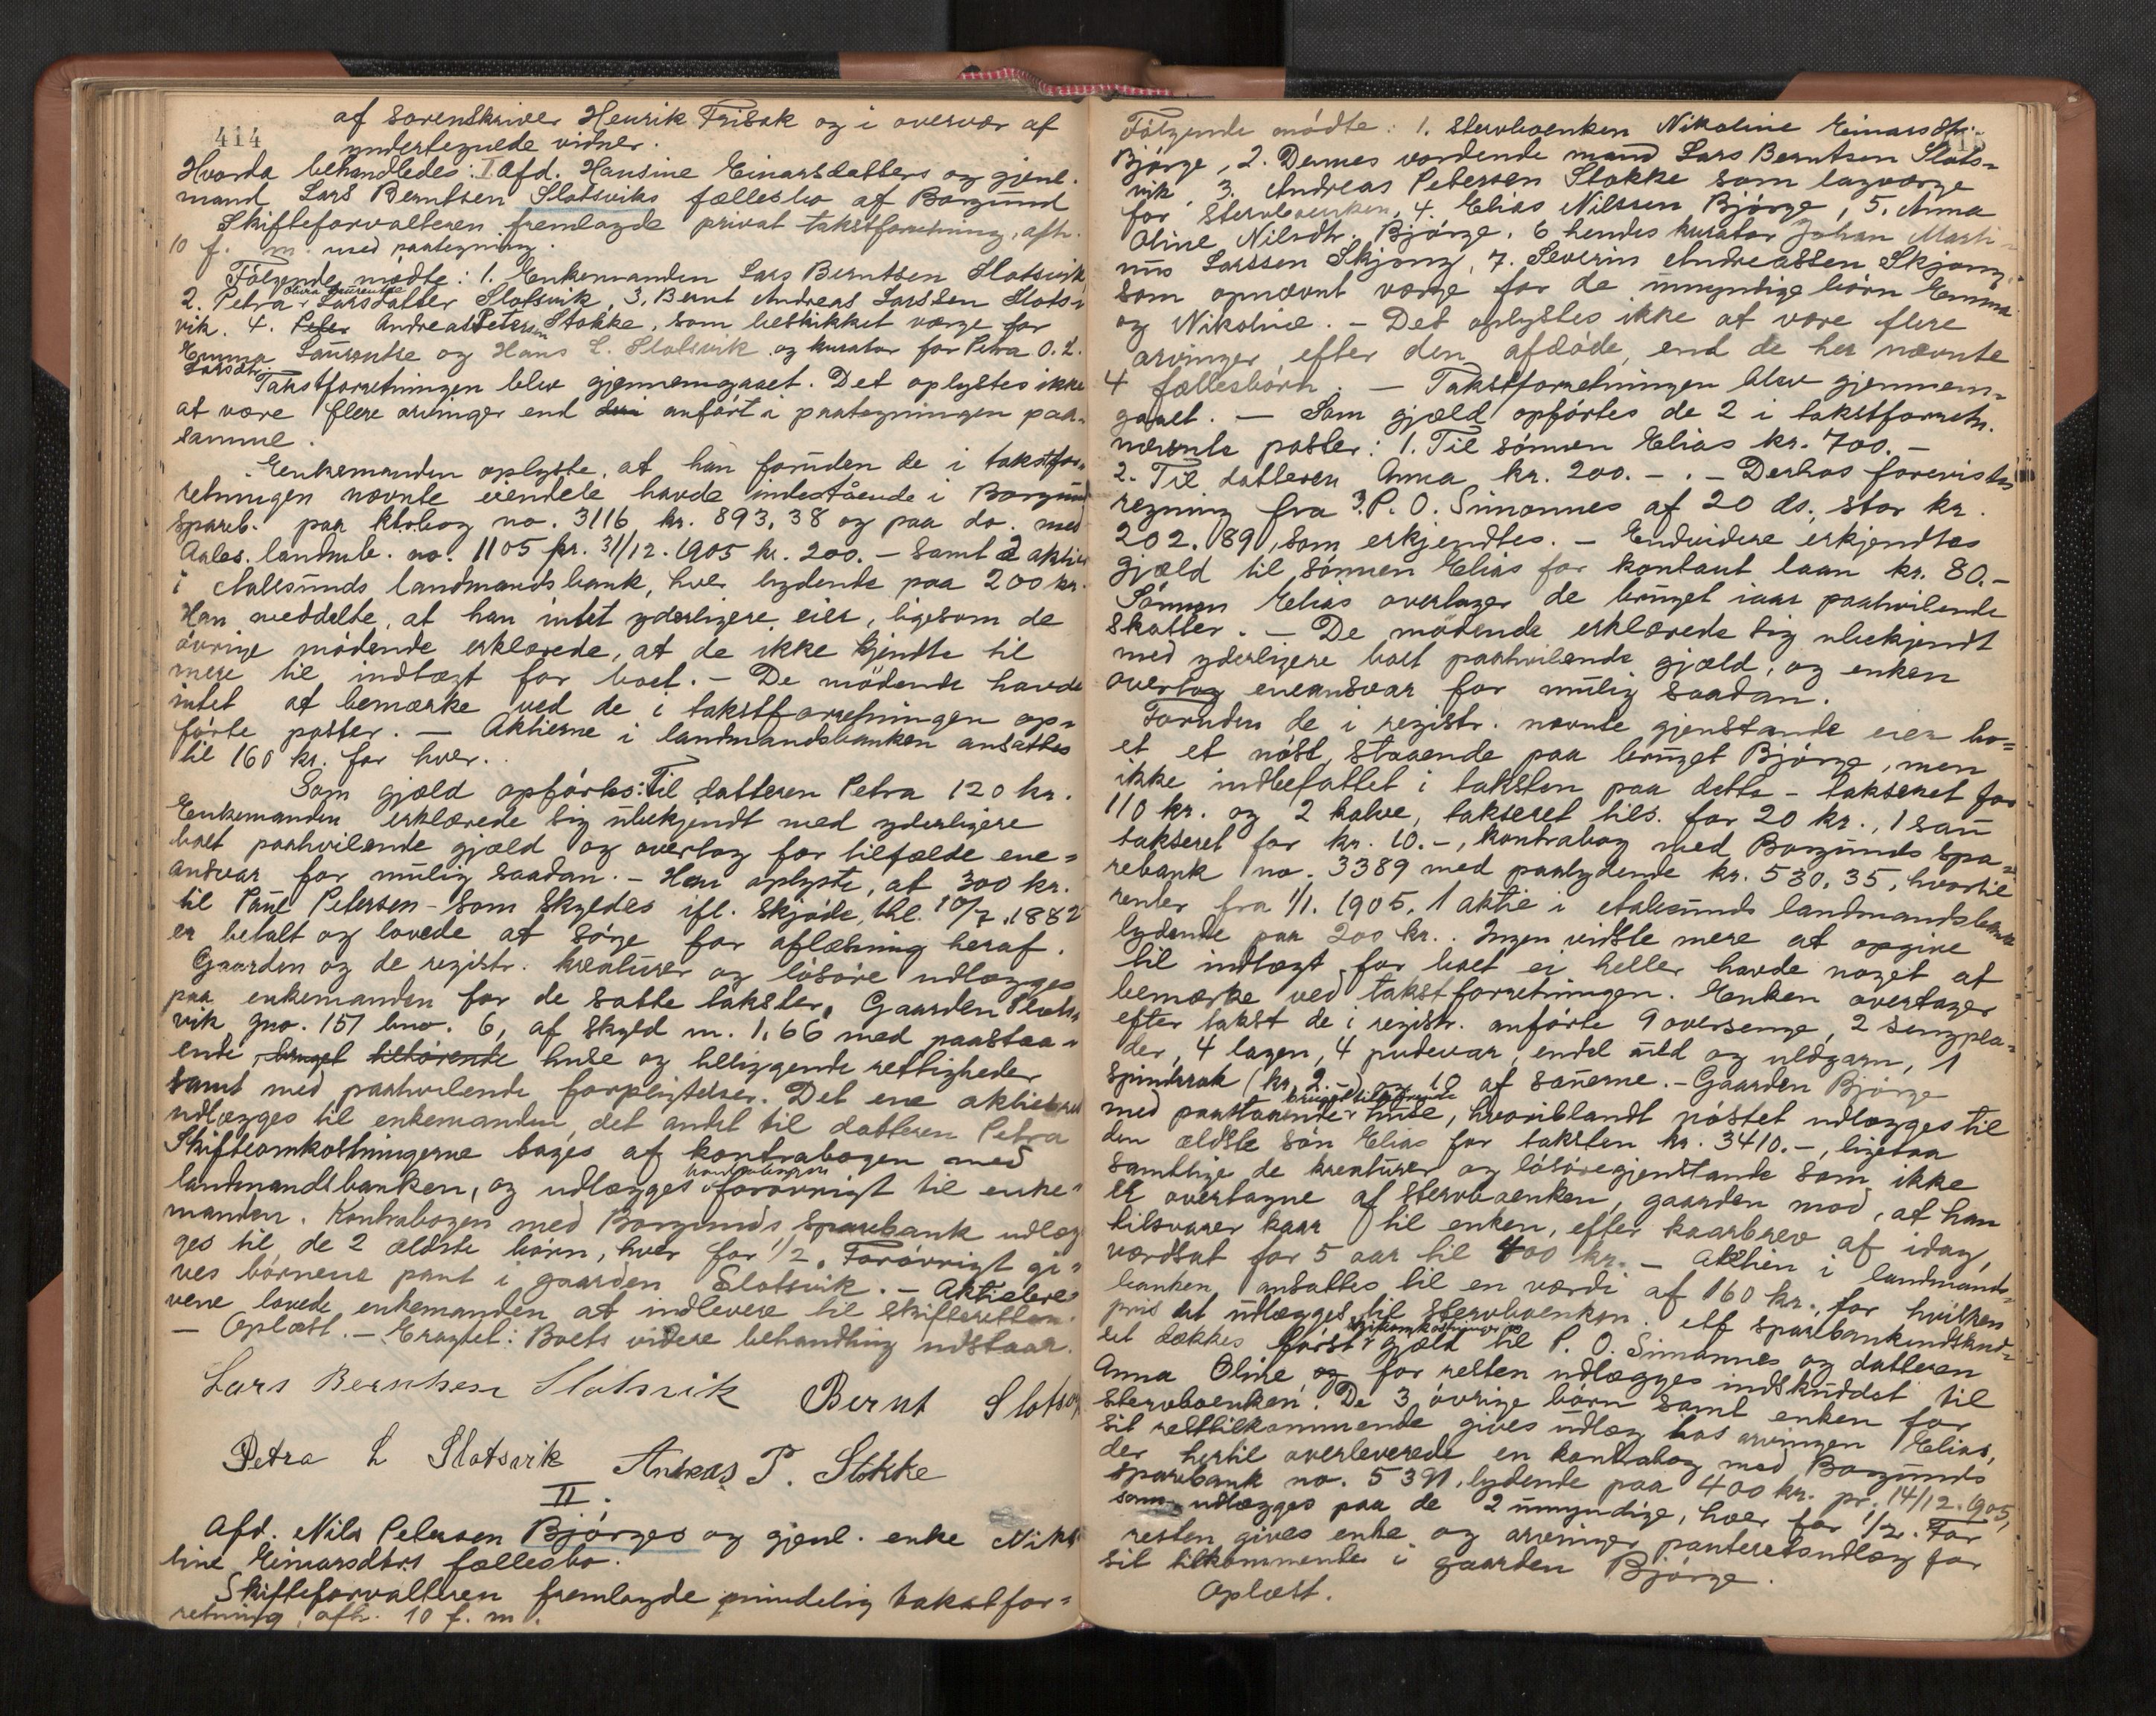 414
af sorenskriver Henrik Frisak og i overvær af
undertegnede vidner.
Hvorda behandledes: I Afd. Hansine Einarsdatters og gjenl.
mand Lars Berntsen Slotsviks fællesbo af Borgund
Skifteforvalteren fremlagde privat takstforretning, afh.
10 f. m. med paategning.
Følgende mødte: 1. Enkemanden Lars Berntsen Slotsvik
2. Petra Olina Laurentse Larsdatter Slotsvik, 3. Bernt Andreas Larssen Slots-
vik. 4. Peter Andreas Petersen Stokke, som beskikket værge for
Emma Laurentse og Hans L. Slotsvik og kurator for Petra O. L.
Larsdtr.
Takstforretningen blev gjennemgaaet. Det oplystes ikke
at være flere arvinger end anført i paategningen paa
samme.
Enkemanden oplyste, at han foruden de i takstfor-
retningen nævnte eiendele havde indestående i Borgund
spareb. paa ktrbog no. 3116 kr. 893,38 og paa do. med
Aales. landmb. no. 1105 pr. 31/12. 1905 kr. 200.- samt 2 aktier
i Aalesunds landmandsbank, hver lydende paa 200 kr.
Han meddelte, at han intet yderligere eier, ligesom de
øvrige mødende erklærede, at de ikke kjendte til
mere til indtægt for boet. - De mødende havde
intet at bemærke ved de i takstforretningen op-
førte poster. - Aktierne i landmandsbanken ansattes
til 160 kr. for hver.
Som gjæld opførtes: Til datteren Petra 120 kr.
Enkemanden erklærede sig ubekjendt med yderligere
boet paahvilende gjæld og overtog for tilfælde ene-
ansvar for mulig saadan. - Han oplyste, at 300 kr.
til Paul Petersen - som skyldes ifl. skjøde, thl. 10/7. 1882
er betalt og lovede at sørge for aflæsning heraf.
Gaarden og de registr. kreaturer og løsøre udlægges
paa enkemanden for de satte takster. Gaarden Slots-
vik gno. 157 bno. 6, af skyld m. 1,66 med paastaa-
ende, bruget tilhørende huse og tilliggende rettigheder
samt med paahvilende forpligtelser. Det ene aktiebrev
udlægges til enkemanden, det andet til datteren Petra
Skifteomkostningerne tages af kontrabogen med
landmandsbanken, og udlægges kontrabogen forøvrigt til enke-
manden. Kontrabogen med Borgunds sparebank udlæg-
ges til de 2 ældste børn, hver for 1/2. Forøvrigt gi-
ves børnene pant i gaarden Slotsvik. - Aktiebre-
vene lovede enkemanden at indlevere til skifteretten.
- Oplæst. - Eragtet: Boets videre behandling udstaar.
Lars Berntsen Slotsvik Bernt Slotsvik
Petra L Slotsvik Andreas P. Stokke
II.
Afd. Nils Petersen Bjørges og gjenl. enke Niko-
line Einarsdtrs fællesbo.
Skifteforvalteren fremlagde mindelig takstfor-
retning, afh. 10 f. m.
Følgende mødte: 1. Stervboenken Nikoline Einarsdtr.
Bjørge, 2. Dennes vordende mand Lars Berntsen Slots-
vik, 3. Andreas Petersen Stokke som lagværge
for stervboenken, 4. Elias Nilssen Bjørge, 5. Anna
Oline Nilsdtr. Bjørge, 6 hendes kurator Johan Marti-
nus Larssen Skjong, 7. Severin Andreassen Skjong
som opnævnt værge for de umyndige børn Emma
og Nikoline. - Det oplystes ikke at være flere
arvinger efter den afdøde, end de her nævnte
4 fællesbørn. - Takstforretningen blev gjennem-
gaaet. - Som gjæld opførtes de 2 i takstforretn.
nævnte poster: 1. Til sønnen Elias kr. 700.-
2. Til datteren Anna kr. 200.-. - Derhos forevistes
regning fra 3. P. O. Simonnes af 20 ds, stor kr.
202.89, som erkjendtes. - Endvidere erkjendtes
gjæld til sønnen Elias for kontant laan kr. 80.-
Sønnen Elias overtager de bruget iaar paahvilende
skatter. - De mødende erklærede sig ubekjendt
med yderligere boet paahvilende gjæld, og enken
overtog eneansvar for mulig saadan.
Foruden de i registr. nævnte gjenstande eier bo-
et et nøst, staaende paa bruget Bjørge, men
ikke indbefattet i taksten paa dette - takseret for
110 kr. og 2 kalve, takseret tils. for 20 kr., 1 sau
takseret for kr. 10.-, kontrabog med Borgunds spa-
rebank no. 3389 med paalydende kr. 530,35, hvortil
renter fra 1/1. 1905, 1 aktie i Aalesunds landmandsbank
lydende paa 200 kr.. Ingen vidste mere at opgive
til indtægt for boet ei heller havde noget at
bemærke ved takstforretningen. Enken overtager
efter takst de i registr. anførte 9 oversenge, 2 sengplæ-
der, 4 lagen, 4 pudevar, endel uld og uldgarn, 1
spinderok (kr. 2.-) og 10 af sauerne. - Gaarden Bjørge
med paastaaende bruget tilhørende huse, hvoriblandt nøstet udlægges til
den ældste søn Elias for taksten kr. 3410.-, ligesaa
samtlige de kreaturer og løsøregjenstande som ikke
er overtagne af stervboenken, gaarden mod, at han
tilsvarer kaar til enken, efter kaarbrev af idag,
værdsat for 5 aar til 400 kr. - Aktien i landmands-
banken ansattes til en værdi af 160 kr., for hvilken
pris den udlægges til stervboenken. Af sparebankindskud-
det dækkes først skifteomkostninger og gjæld til P. O. Simonnes og datteren
Anna Oline og for resten udlægges indskuddet til
stervboenken. De 3 øvrige børn samt enken for
sit resttilkommende gives udlæg hos arvingen Elias,
der hertil overleverede en kontrabog med Borgunds
sparebank no. 5391, lydende paa 400 kr. pr. 14/12. 1905,
som udlægges paa de 2 umyndige, hver for 1/2. For
resten gives enke og arvinger panteretsudlæg for
sit tilkommende i gaarden Bjørge.
Oplæst.